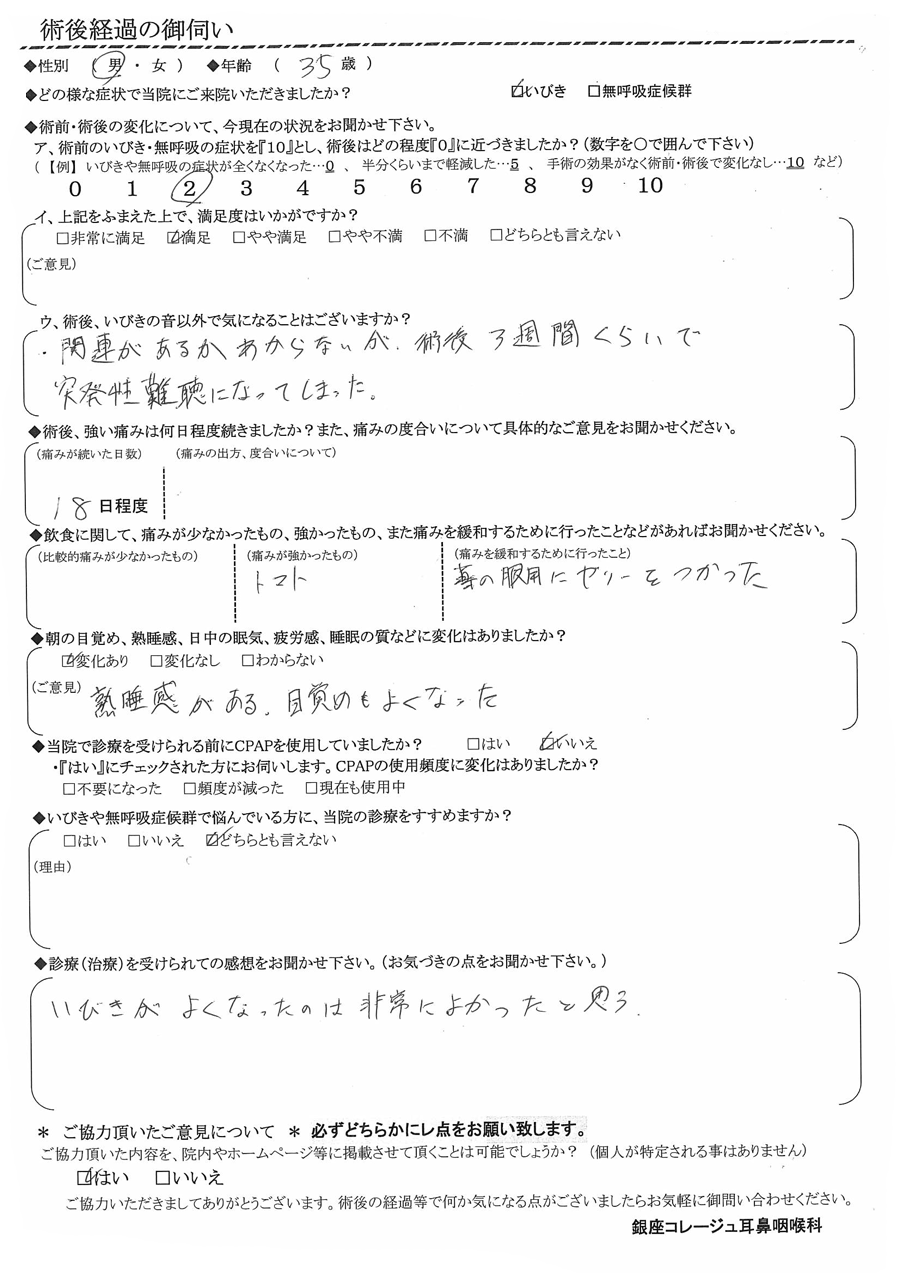 術後経過の御伺い
◆性別 ( 男 ・ 女 ) ◆年齢 ( 35 歳 )
◆どの様な症状で当院にご来院いただきましたか? ☑いびき □無呼吸症候群
◆術前・術後の変化について、今現在の状況をお聞かせ下さい。
ア、術前のいびき・無呼吸の症状を『10』とし、術後はどの程度『0』に近づきましたか?(数字を〇で囲んで下さい)
(【例】 いびきや無呼吸の症状が全くなくなった…0 、 半分くらいまで軽減した…5 、 手術の効果がなく術前・術後で変化なし…10 など)
0 1 2 3 4 5 6 7 8 9 10
イ、上記をふまえた上で、満足度はいかがですか?
□非常に満足 ☑満足 □やや満足 □やや不満 □不満 □どちらとも言えない
(ご意見)
ウ、術後、いびきの音以外で気になることはございますか?
・関連があるかわからないが、術後3週間くらいで
突発性難聴になってしまった。
◆術後、強い痛みは何日程度続きましたか?また、痛みの度合いについて具体的なご意見をお聞かせください。
(痛みが続いた日数) (痛みの出方、度合いについて)
18 日程度
◆飲食に関して、痛みが少なかったもの、強かったもの、また痛みを緩和するために行ったことなどがあればお聞かせください。
(比較的痛みが少なかったもの) (痛みが強かったもの) (痛みを緩和するために行ったこと)
トマト 薬の服用にゼリーをつかった
◆朝の目覚め、熟睡感、日中の眠気、疲労感、睡眠の質などに変化はありましたか?
☑変化あり □変化なし □わからない
(ご意見) 熟睡感がある。目覚めもよくなった
◆当院で診療を受けられる前にCPAPを使用していましたか? □はい ☑いいえ
・『はい』にチェックされた方にお伺いします。CPAPの使用頻度に変化はありましたか?
□不要になった □頻度が減った □現在も使用中
◆いびきや無呼吸症候群で悩んでいる方に、当院の診療をすすめますか?
□はい □いいえ ☑どちらとも言えない
(理由)
◆診療(治療)を受けられての感想をお聞かせ下さい。(お気づきの点をお聞かせ下さい。)
いびきがよくなったのは非常によかったと思う.
* ご協力頂いたご意見について * 必ずどちらかにレ点をお願い致します。
ご協力頂いた内容を、院内やホームページ等に掲載させて頂くことは可能でしょうか? (個人が特定される事はありません)
☑はい □いいえ
ご協力いただきましてありがとうございます。術後の経過等で何か気になる点がございましたらお気軽に御問い合わせください。
銀座コレージュ耳鼻咽喉科